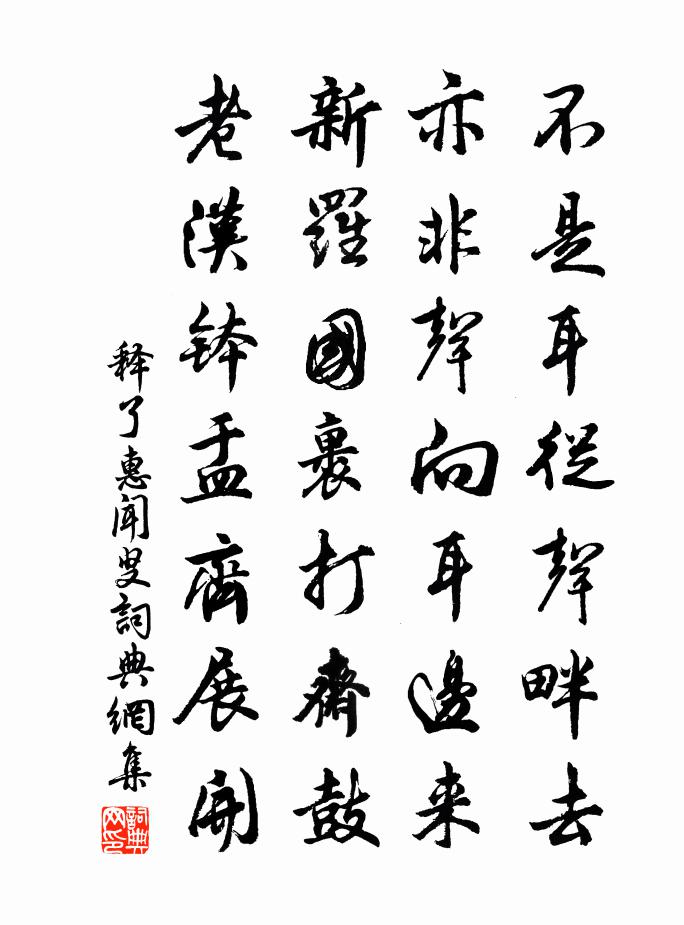 不是耳從聲畔去
亦非聲向耳邊来
新羅國裹打齋鼓
老漢鉢盂齊展開
释了惠聞叟詞典網集
詞典网印